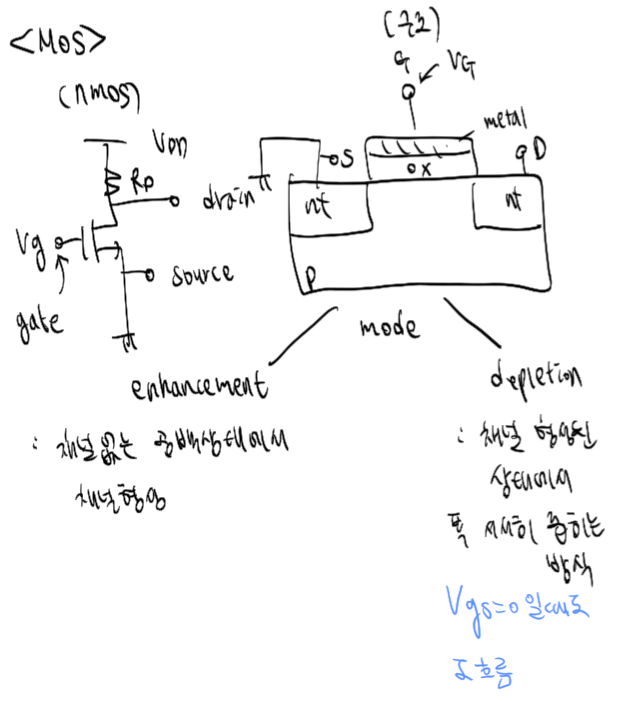 <MOS>
(nmos)
VDD
RD
drain
Vg
gate
source
(구조)
G
VG
metal
S
ox
D
n+
n+
P
mode
enhancement
: 채널 없는 공백상태에서
채널형성
depletion
: 채널 형성된
상태에서
폭 서서히 줄이는
방식
Vgs=0 일때도
I 흐름